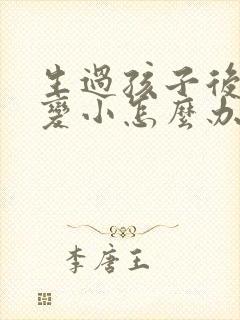 生過孩子後
變小怎麼办
李唐王